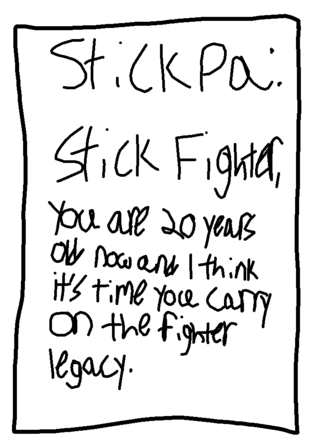 StickPa:
Stick Fighter,
You are 20 years
old now and I think
it's time you carry
on the fighter
legacy.